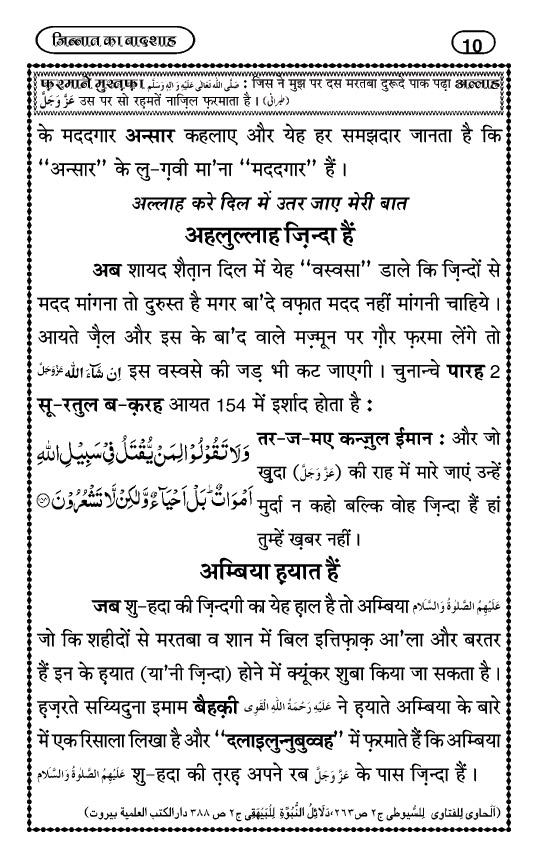 जिन्नात का बादशाह
10
फ़रमाने मुस्तफ़ा صَلَّى اللهُ تَعَالٰى عَلَيْهِ وَاٰلِهٖ وَسَلَّم : जिस ने मुझ पर दस मरतबा दुरूदे पाक पढ़ा अल्लाह
عَزَّوَجَلَّ उस पर सो रहमतें नाज़िल फ़रमाता है । (طبرانی)
के मददगार अन्सार कहलाए और येह हर समझदार जानता है कि
“अन्सार” के लु-ग़वी मा'ना “मददगार” हैं ।
अल्लाह करे दिल में उतर जाए मेरी बात
अहलुल्लाह ज़िन्दा हैं
अब शायद शैतान दिल में येह “वस्वसा” डाले कि ज़िन्दों से
मदद मांगना तो दुरुस्त है मगर बा'दे वफ़ात मदद नहीं मांगनी चाहिये ।
आयते ज़ैल और इस के बा'द वाले मज़्मून पर ग़ौर फ़रमा लेंगे तो
اِنْ شَآءَ اللّٰه عَزَّوَجَلَّ इस वस्वसे की जड़ भी कट जाएगी । चुनान्चे पारह 2
सू-रतुल ब-क़रह आयत 154 में इर्शाद होता है :
وَلَا تَقُوْلُوْا لِمَنْ يُّقْتَلُ فِيْ سَبِيْلِ اللّٰهِ
اَمْوَاتٌ ؕ بَلْ اَحْيَآءٌ وَّلٰكِنْ لَّا تَشْعُرُوْنَ
तर-ज-मए कन्ज़ुल ईमान : और जो
ख़ुदा (عَزَّوَجَلَّ) की राह में मारे जाएं उन्हें
मुर्दा न कहो बल्कि वोह ज़िन्दा हैं हां
तुम्हें ख़बर नहीं ।
अम्बिया हयात हैं
जब शु-हदा की ज़िन्दगी का येह हाल है तो अम्बिया عَلَيْهِمُ الصَّلٰوةُ وَالسَّلَام
जो कि शहीदों से मरतबा व शान में बिल इत्तिफ़ाक़ आ'ला और बरतर
हैं इन के हयात (या'नी ज़िन्दा) होने में क्यूंकर शुबा किया जा सकता है ।
हज़रते सय्यिदुना इमाम बैहक़ी عَلَيْهِ رَحْمَةُ اللهِ الْقَوِى ने हयाते अम्बिया के बारे
में एक रिसाला लिखा है और “दलाइलुन्नुबुव्वह” में फ़रमाते हैं कि अम्बिया
عَلَيْهِمُ الصَّلٰوةُ وَالسَّلَام शु-हदा की तरह अपने रब عَزَّوَجَلَّ के पास ज़िन्दा हैं ।
(الحاوى للفتاوى للسيوطى ج٢ ص٢٦٣، دَلَائِلُ النُّبُوَّة لِلْبَيْهَقِى ج٢ ص ٣٨٨ دارالكتب العلمية بيروت)